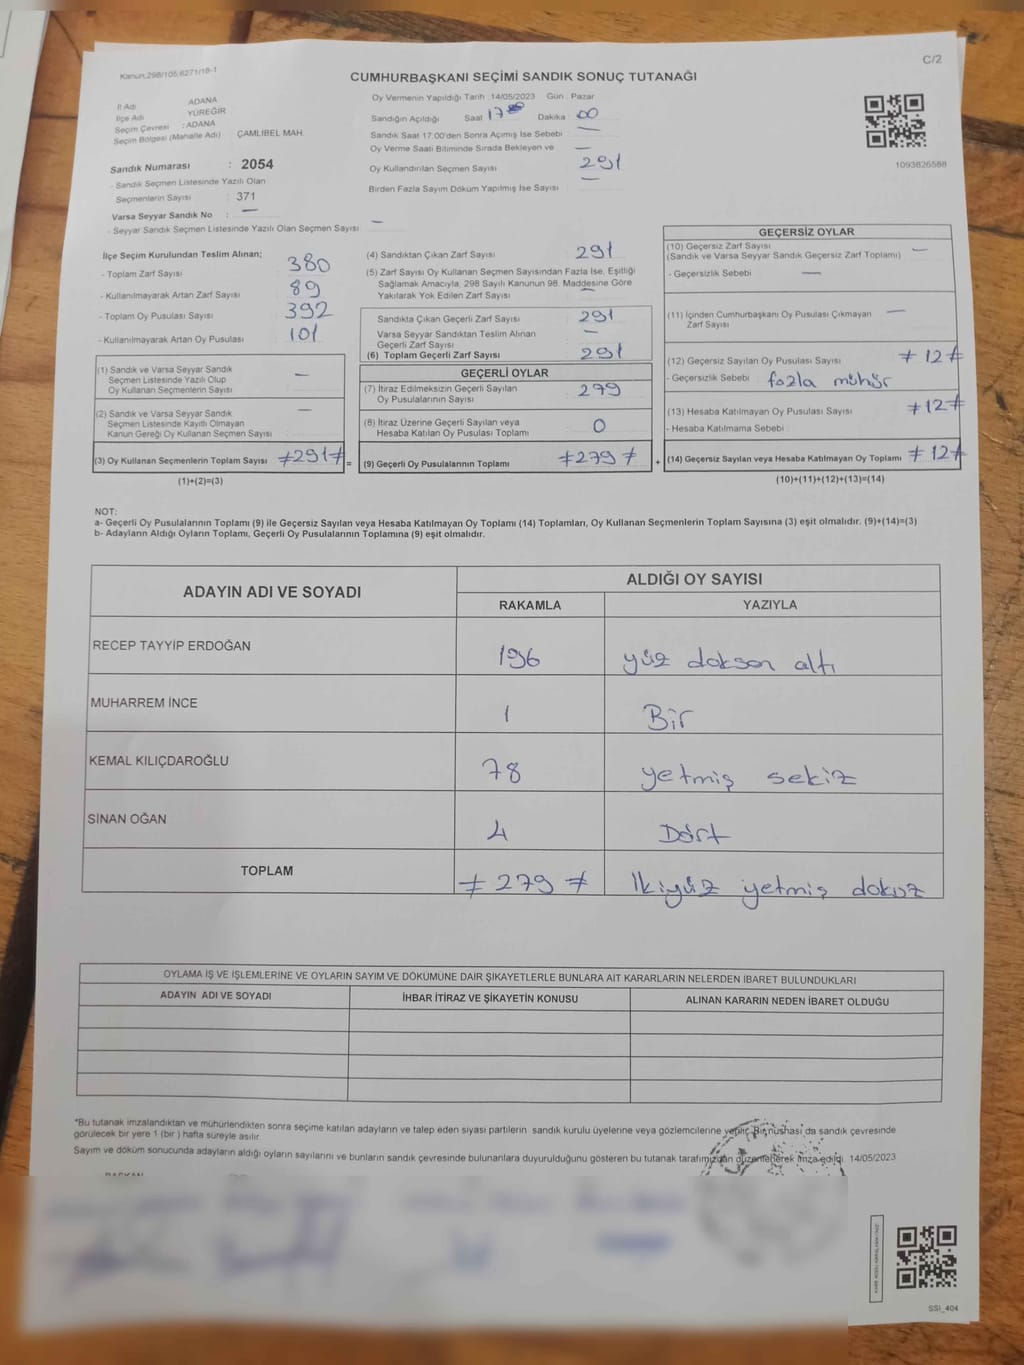 Kanun:298/105;6271/18-1
C/2
CUMHURBAŞKANI SEÇİMİ SANDIK SONUÇ TUTANAĞI
İl Adı ADANA
İlçe Adı YÜREĞİR
Seçim Çevresi : ADANA
Seçim Bölgesi (Mahalle Adı) ÇAMLIBEL MAH.
Sandık Numarası : 2054
- Sandık Seçmen Listesinde Yazılı Olan
Seçmenlerin Sayısı : 371
Varsa Seyyar Sandık No : —
- Seyyar Sandık Seçmen Listesinde Yazılı Olan Seçmen Sayısı: —
Oy Vermenin Yapıldığı Tarih :14/05/2023 Gün : Pazar
Sandığın Açıldığı Saat 17 Dakika : 00
Sandık Saat 17.00'den Sonra Açımış İse Sebebi —
Oy Verme Saati Bitiminde Sırada Bekleyen ve —
Oy Kullandırılan Seçmen Sayısı 291
Birden Fazla Sayım Döküm Yapılmış İse Sayısı —
1093826588
İlçe Seçim Kurulundan Teslim Alınan;
- Toplam Zarf Sayısı 380
- Kullanılmayarak Artan Zarf Sayısı 89
- Toplam Oy Pusulası Sayısı 392
- Kullanılmayarak Artan Oy Pusulası 101
(1) Sandık ve Varsa Seyyar Sandık
Seçmen Listesinde Yazılı Olup
Oy Kullanan Seçmenlerin Sayısı —
(2) Sandık ve Varsa Seyyar Sandık
Seçmen Listesinde Kayıtlı Olmayan
Kanun Gereği Oy Kullanan Seçmen Sayısı —
(3) Oy Kullanan Seçmenlerin Toplam Sayısı ≠291≠ =
(1)+(2)=(3)
(4) Sandıktan Çıkan Zarf Sayısı 291
(5) Zarf Sayısı Oy Kullanan Seçmen Sayısından Fazla İse, Eşitliği
Sağlamak Amacıyla, 298 Sayılı Kanunun 98. Maddesine Göre
Yakılarak Yok Edilen Zarf Sayısı —
Sandıkta Çıkan Geçerli Zarf Sayısı 291
Varsa Seyyar Sandıktan Teslim Alınan
Geçerli Zarf Sayısı —
(6) Toplam Geçerli Zarf Sayısı 291
GEÇERLİ OYLAR
(7) İtiraz Edilmeksizin Geçerli Sayılan
Oy Pusulalarının Sayısı 279
(8) İtiraz Üzerine Geçerli Sayılan veya
Hesaba Katılan Oy Pusulası Toplamı 0
(9) Geçerli Oy Pusulalarının Toplamı ≠279≠ +
GEÇERSİZ OYLAR
(10) Geçersiz Zarf Sayısı
(Sandık ve Varsa Seyyar Sandık Geçersiz Zarf Toplamı) —
- Geçersizlik Sebebi —
(11) İçinden Cumhurbaşkanı Oy Pusulası Çıkmayan
Zarf Sayısı —
(12) Geçersiz Sayılan Oy Pusulası Sayısı ≠12≠
- Geçersizlik Sebebi fazla mühür
(13) Hesaba Katılmayan Oy Pusulası Sayısı ≠12≠
- Hesaba Katılmama Sebebi
(14) Geçersiz Sayılan veya Hesaba Katılmayan Oy Toplamı ≠12≠
(10)+(11)+(12)+(13)=(14)
NOT:
a- Geçerli Oy Pusulalarının Toplamı (9) ile Geçersiz Sayılan veya Hesaba Katılmayan Oy Toplamı (14) Toplamları, Oy Kullanan Seçmenlerin Toplam Sayısına (3) eşit olmalıdır. (9)+(14)=(3)
b- Adayların Aldığı Oyların Toplamı, Geçerli Oy Pusulalarının Toplamına (9) eşit olmalıdır.
ADAYIN ADI VE SOYADI ALDIĞI OY SAYISI
RAKAMLA YAZIYLA
RECEP TAYYİP ERDOĞAN 196 yüz doksan altı
MUHARREM İNCE 1 Bir
KEMAL KILIÇDAROĞLU 78 yetmiş sekiz
SİNAN OĞAN 4 Dört
TOPLAM ≠279≠ İkiyüz yetmiş dokuz
OYLAMA İŞ VE İŞLEMLERİNE VE OYLARIN SAYIM VE DÖKÜMÜNE DAİR ŞİKAYETLERLE BUNLARA AİT KARARLARIN NELERDEN İBARET BULUNDUKLARI
ADAYIN ADI VE SOYADI İHBAR İTİRAZ VE ŞİKAYETİN KONUSU ALINAN KARARIN NEDEN İBARET OLDUĞU
*Bu tutanak imzalandıktan ve mühürlendikten sonra seçime katılan adayların ve talep eden siyasi partilerin sandık kurulu üyelerine veya gözlemcilerine verilir. Bir nüshası da sandık çevresinde
görülecek bir yere 1 (bir ) hafta süreyle asılır.
Sayım ve döküm sonucunda adayların aldığı oyların sayılarını ve bunların sandık çevresinde bulunanlara duyurulduğunu gösteren bu tutanak tarafımızdan düzenlenerek imza edildi. 14/05/2023
SSI_404